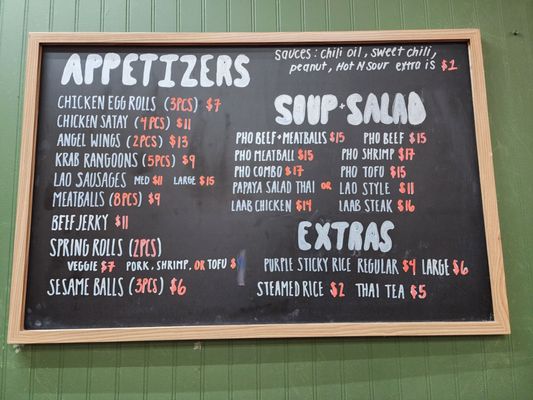 APPETIZERS
CHICKEN EGG ROLLS (3PCS) $7
CHICKEN SATAY (4PCS) $11
ANGEL WINGS (2PCS) $13
KRAB RANGOONS (5PCS) $9
LAO SAUSAGES MED $11 LARGE $15
MEATBALLS (8PCS) $9
BEEF JERKY $11
SPRING ROLLS (2PCS)
VEGGIE $7 PORK, SHRIMP, OR TOFU $
SESAME BALLS (3PCS) $6
SAUCES: CHILI OIL, SWEET CHILI,
PEANUT, HOT N SOUR EXTRA IS $1
SOUP + SALAD
PHO BEEF + MEATBALLS $15 PHO BEEF $15
PHO MEATBALL $15 PHO SHRIMP $17
PHO COMBO $17 PHO TOFU $15
PAPAYA SALAD THAI OR LAO STYLE $11
LAAB CHICKEN $14 LAAB STEAK $16
EXTRAS
PURPLE STICKY RICE REGULAR $4 LARGE $6
STEAMED RICE $2 THAI TEA $5